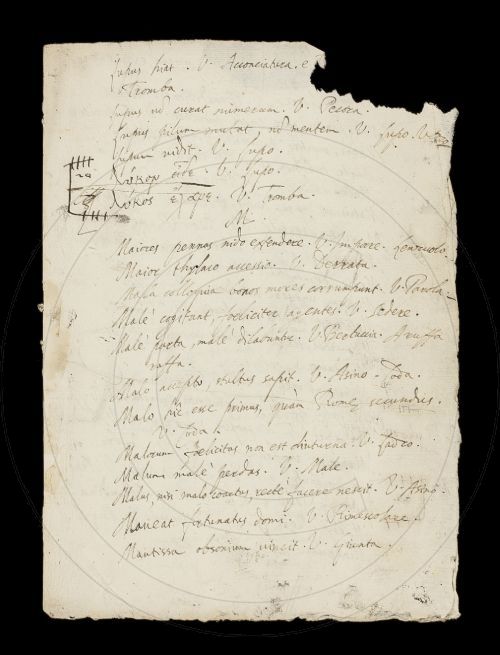 Lupus hiat. V. Acconciatura, e
Tromba.
Lupus nõ curat numerum. V. Pecora.
Lupus pilum mutat, nõ mentem. V. Lupo. Vizio
Lupum vidit. V. Lupo.
Λύκον εἶδε. V. Lupo.
Λύκος V. Tromba.
M.
Maiores pennas nido extendere. V.
Maior thylaco accessio. V. Derrata.
Mala colloquia bonos mores corrumpunt. V. Parola.
Malè cogitant, foeliciter agentes. V. Sedere.
Malè parta, malè dilabuntur. V. Bertuccia. Aruffa
raffa.
Malo accepto, stultus sapit. V. Asino. Toda.
Malo hîc esse primus, quàm Romę secundus.
V. Toda.
Malorum foelicitas non est diuturna. V. Ladro.
Malum malè perdas. V. Male.
Malus, nisi malo coactus, rectè facere nescit. V. Asino.
Maneat fortunatus domi. V. Rimescolare.
Mantissa obsonium vincit. V. Giunta.